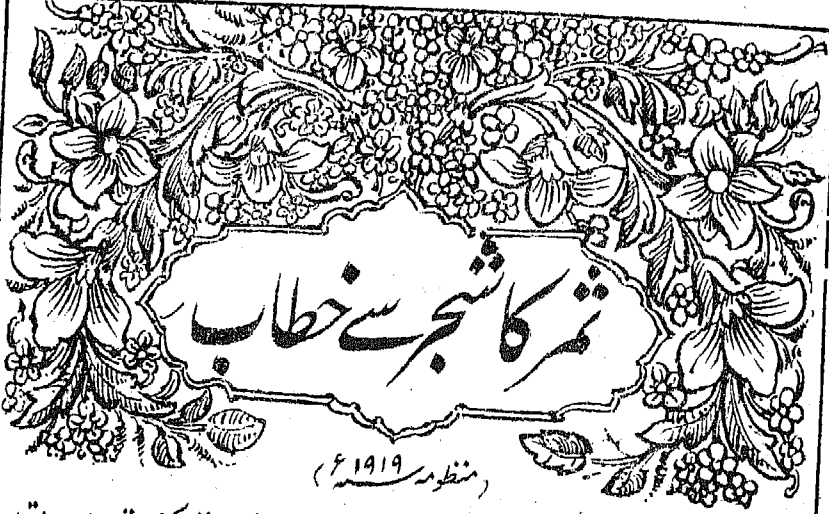 ثمر کا شجر سے خطاب
(منظومہ سنہ ۱۹۱۹ء)